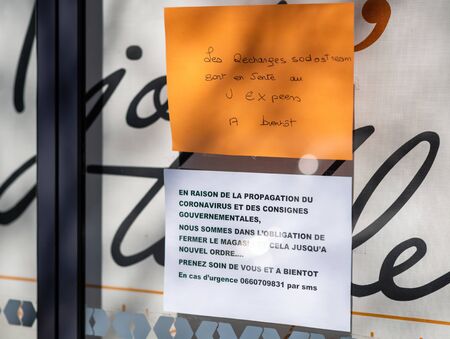 Les Recharges sodastream
sont en vente au
U express
A bientôt
EN RAISON DE LA PROPAGATION DU
CORONAVIRUS ET DES CONSIGNES
GOUVERNEMENTALES,
NOUS SOMMES DANS L'OBLIGATION DE
FERMER LE CELA JUSQU'A
NOUVEL ORDRE....
PRENEZ SOIN DE VOUS ET A BIENTOT
En cas d'urgence 0660709831 par sms